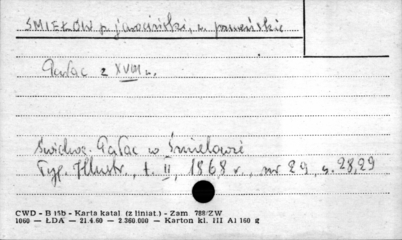 ŚMIEŁÓW p. jarociński, w. poznańskie
Pałac z XVIII w.
Pałac w Śmiełowie
Tyg. Illustr., t. II, 1868 r., nr 29, s. 28,29
CWD - B 15b - Karta katal. (z liniat.) - Zam 788/ZW
1060 - ŁDA - 21.4.60 - 2.360.000 - Karton kl. III A1 160 g